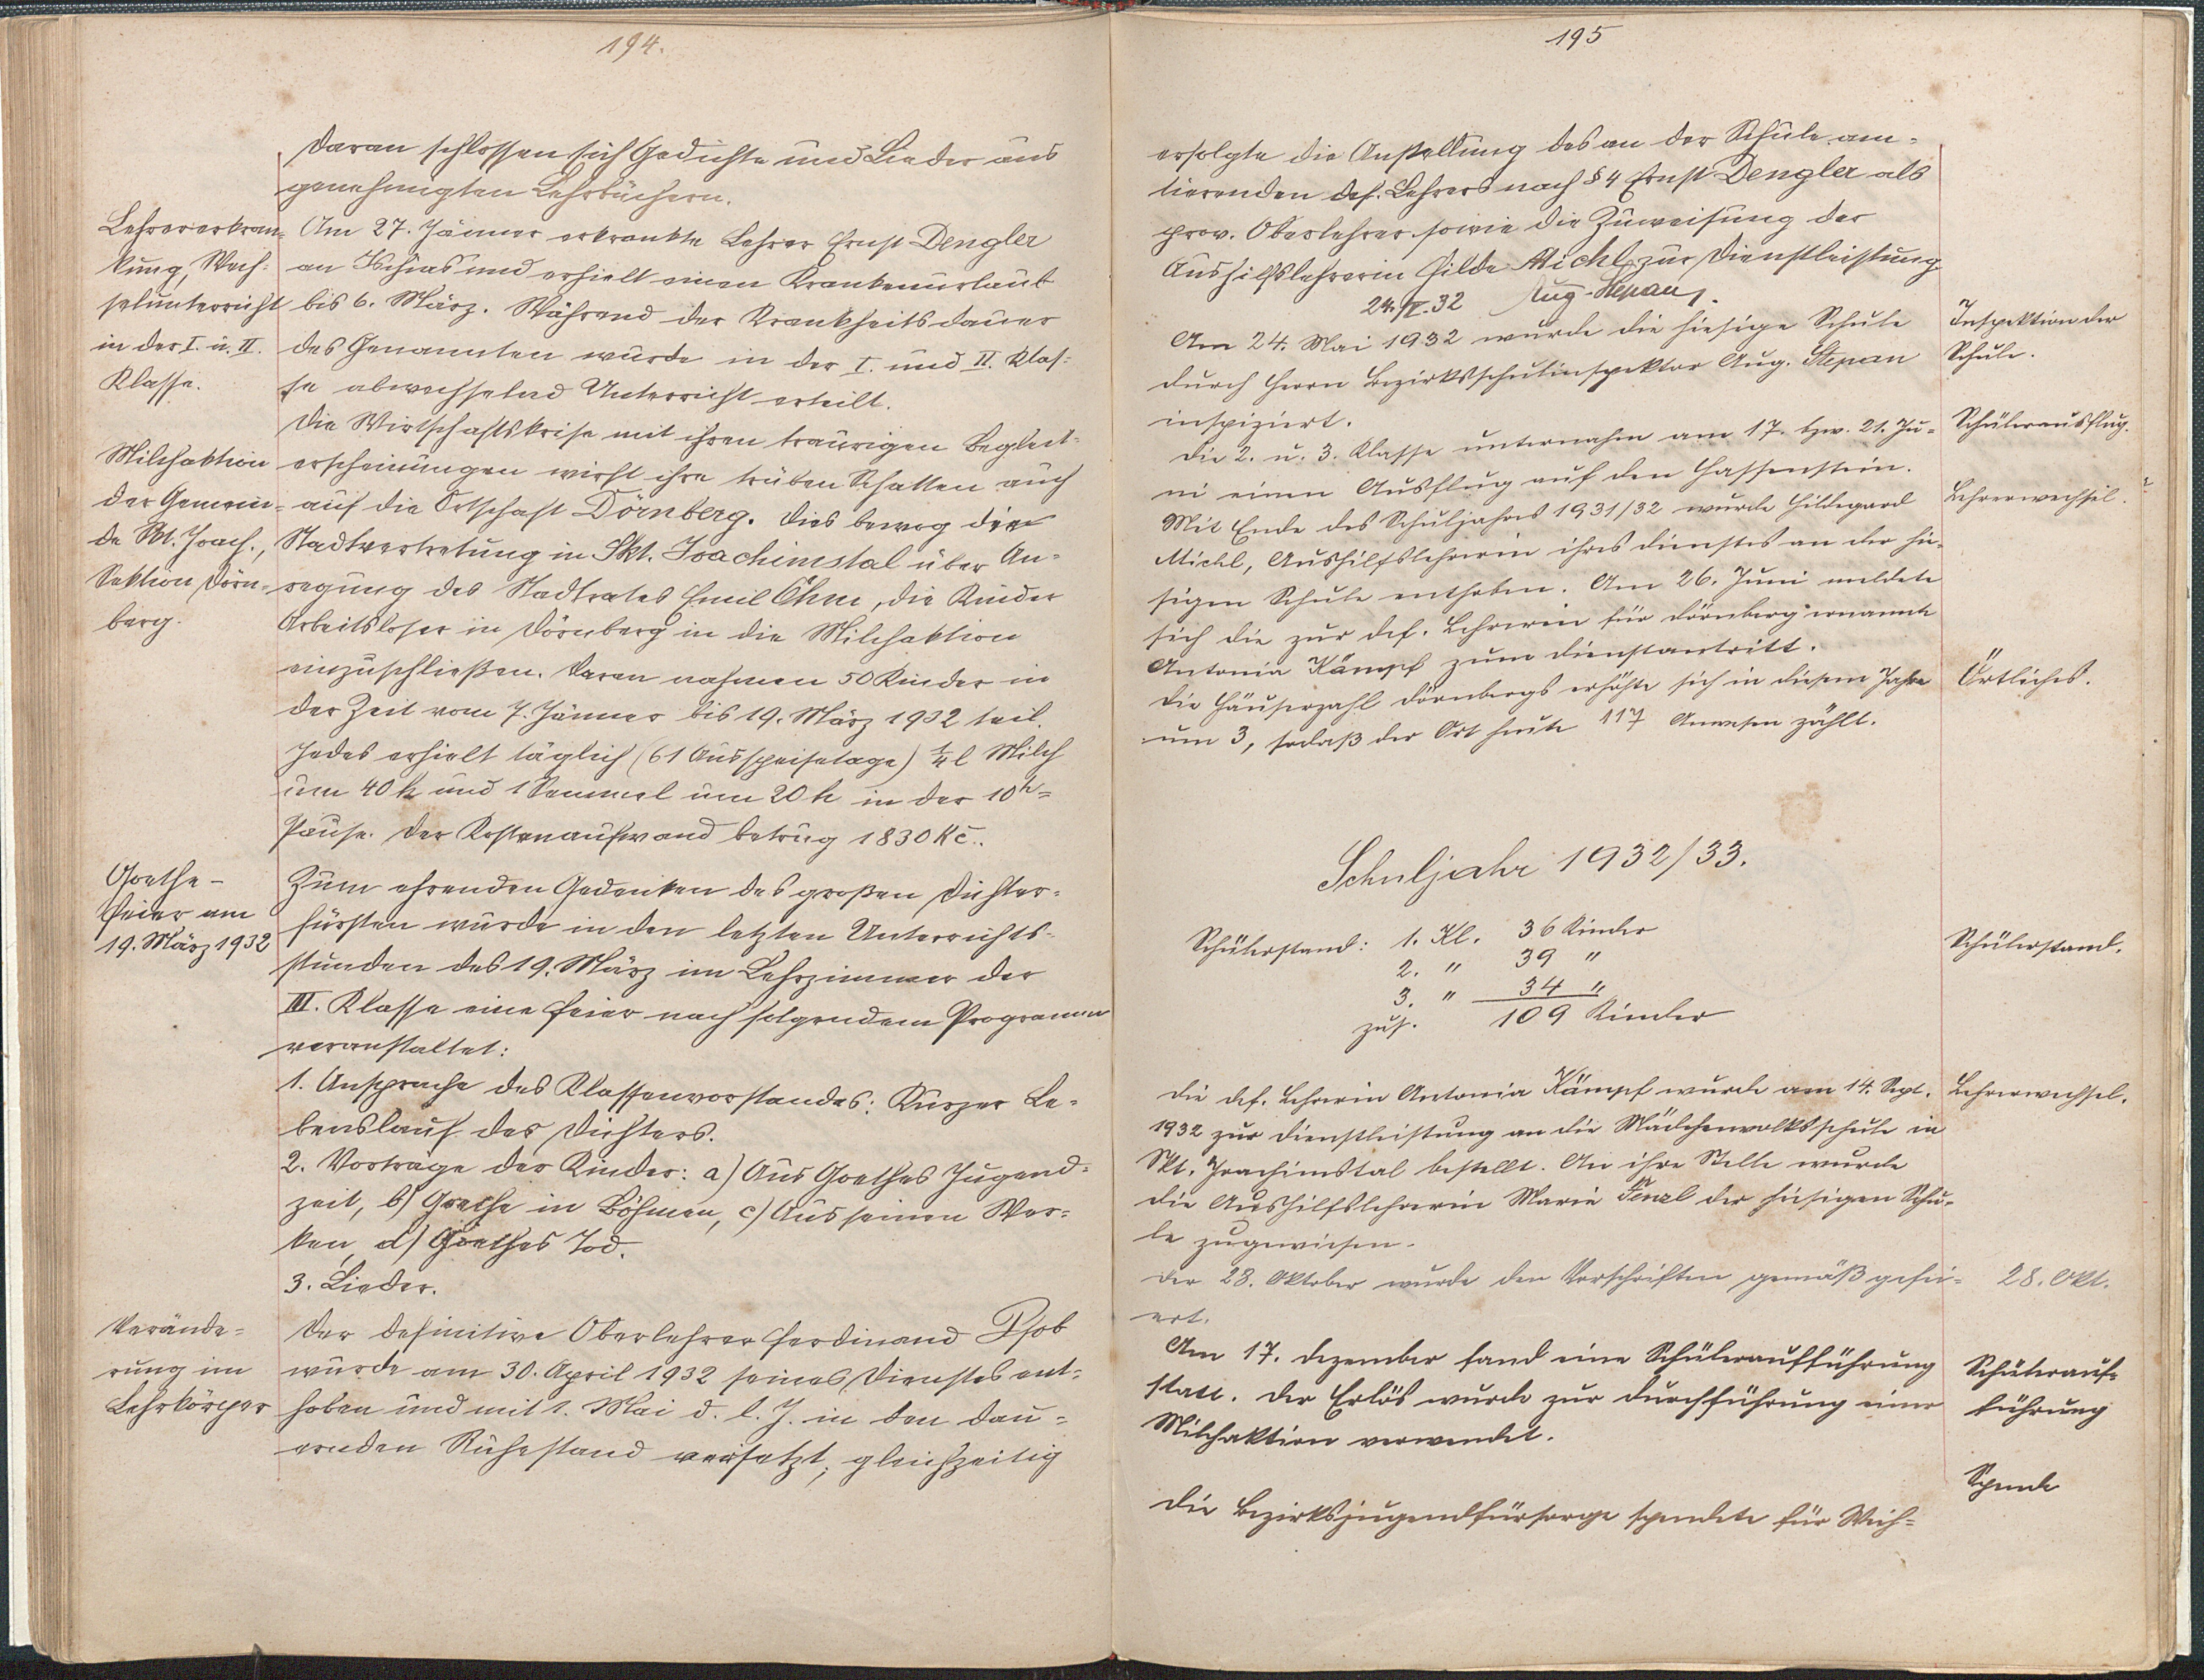 194.
Daran schlossen sich Gedichte und Lieder aus
genehmigten Lehrbüchern.
Lehrererkran-
kung, Wech-
selunterricht
in der I. u. II.
Klasse.
Am 27. Jänner erkrankte Lehrer Ernst Dengler
an Ischias und erhielt einen Krankenurlaub
bis 6. März. Während der Krankheitsdauer
des Genannten wurde in der I. und II. Klas-
se abwechselnd Unterricht erteilt.
Milchaktion
der Gemein-
de Skt. Joach.,
Sektion Dörn-
berg.
Die Wirtschaftskrise mit ihren traurigen Begleit-
erscheinungen wirft ihre trüben Schatten auch
auf die Ortschaft Dörnberg. Dies bewog die
Stadtvertretung in Skt. Joachimstal über An-
regung des Stadtrates Emil Öhm, die Kinder
Arbeitsloser in Dörnberg in die Milchaktion
einzuschließen. Daran nahmen 50 Kinder in
der Zeit vom 7. Jänner bis 19. März 1932 teil.
Jedes erhielt täglich (61 Ausspeisetage) ¼ l Milch
um 40 h und 1 Semmel um 20 h in der 10h-
Pause. Der Kostenaufwand betrug 1830 Kč.
Goethe-
feier am
19. März 1932
Zum ehrenden Gedenken des großen Dichter-
fürsten wurde in den letzten Unterrichts-
stunden des 19. März im Lehrzimmer der
III. Klasse eine Feier nach folgendem Programm
veranstaltet:
1. Ansprache des Klassenvorstandes: Kurzer Le-
benslauf des Dichters.
2. Vorträge der Kinder: a) Aus Goethes Jugend-
zeit, b) Goethe in Böhmen, c) Aus seinen Wer-
ken, d) Goethes Tod.
3. Lieder.
Verände-
rung im
Lehrkörper
Der definitive Oberlehrer Ferdinand Pfob
wurde am 30. April 1932 seines Dienstes ent-
hoben und mit 1. Mai d. l. J. in den dau-
ernden Ruhestand versetzt; gleichzeitig
195
erfolgte die Anstellung des an der Schule am-
tierenden def. Lehrers nach § 4 Ernst Dengler als
prov. Oberlehrer sowie die Zuweisung der
Aushilfslehrerin Hilde Michl zur Dienstleistung.
24./V. 32 Aug. Stepan
Am 24. Mai 1932 wurde die hiesige Schule
durch Herrn Bezirksschulinspektor Aug. Stepan
inspiziert.
Inspektion der
Schule.
Die 2. u. 3. Klasse unternahm am 17. bzw. 21. Ju-
ni einen Ausflug auf den Hassenstein.
Schülerausflug.
Mit Ende des Schuljahres 1931/32 wurde Hildegard
Michl, Aushilfslehrerin ihres Dienstes an der hie-
sigen Schule enthoben. Am 26. Juni meldete
sich die zur def. Lehrerin für Dörnberg ernannte
Antonia Kämpf zum Dienstantritt.
Lehrerwechsel.
Die Häuserzahl Dörnbergs erhöhte sich in diesem Jahre
um 3, sodaß der Ort heute 117 Anwesen zählt.
Örtliches.
Schuljahr 1932/33.
Schülerstand: 1. Kl. 36 Kinder
2. " 39 "
3. " 34 "
zus. 109 Kinder
Schülerstand.
Die def. Lehrerin Antonia Kämpf wurde am 14. Sept.
1932 zur Dienstleistung an die Mädchenvolksschule in
Skt. Joachimstal bestellt. An ihre Stelle wurde
die Aushilfslehrerin Marie Tenzl der hiesigen Schu-
le zugewiesen.
Lehrerwechsel.
Der 28. Oktober wurde den Vorschriften gemäß gefei-
ert.
28. Okt.
Am 17. Dezember fand eine Schüleraufführung
statt. Der Erlös wurde zur Durchführung einer
Milchaktion verwendet.
Schülerauf-
führung
Spende
Die Bezirksjugendfürsorge spendete für Weih-